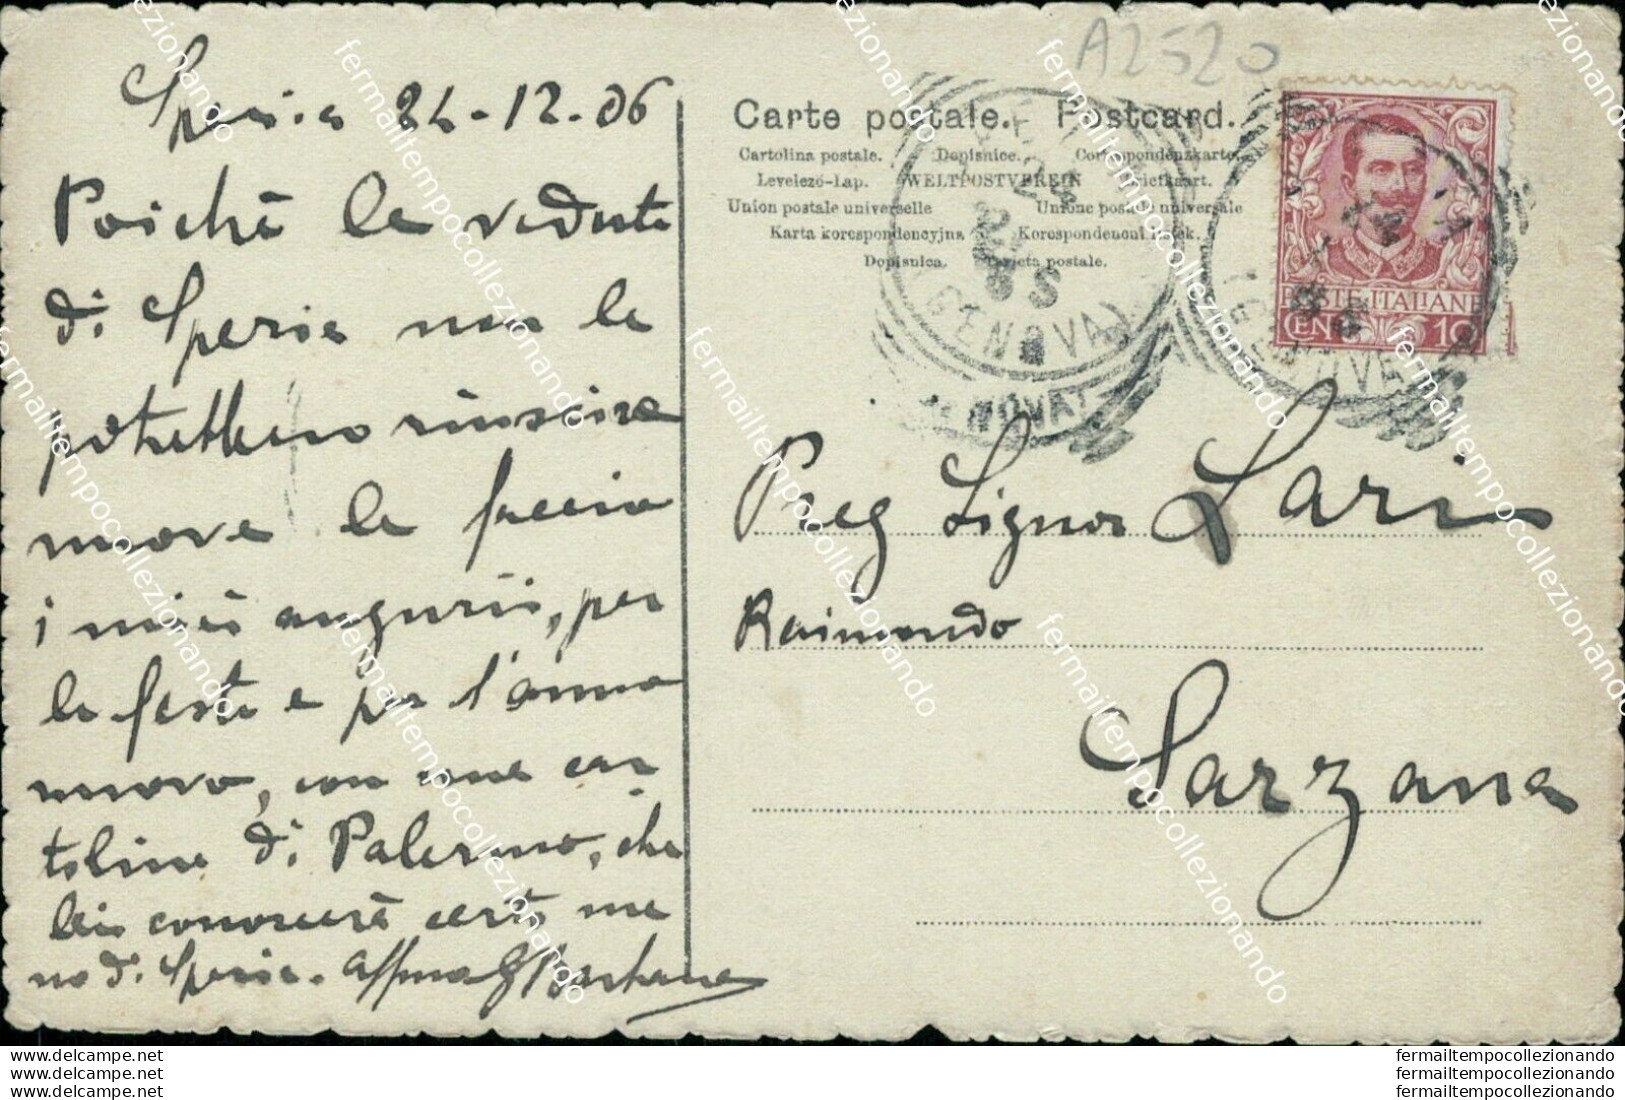 A2520
Spezia 24-12-06
Poiché le vedute
di Spezia non le
potrebbero riuscire
nuove le faccio
i miei auguri, per
le feste e per l'anno
nuovo, con una car
tolina di Palermo, che
lei conoscerà certo me
no di Spezia. Affmo
Carte postale. Postcard.
Cartolina postale. Dopisnice. Correspondenzkarte.
Levelező-Lap. WELTPOSTVEREIN Briefkaart.
Union postale universelle Unione postale universale
Karta korespondencyjna Korespondencni listek.
Dopisnica. Tarjeta postale.
(GENOVA)
POSTE ITALIANE
CEN 10
Preg Signor Lari
Raimondo
Sarzana
www.delcampe.net
www.delcampe.net
www.delcampe.net
fermailtempocollezionando
fermailtempocollezionando
fermailtempocollezionando